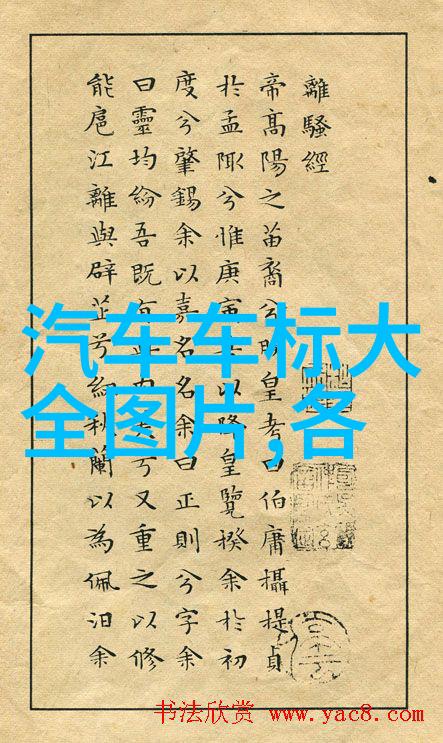 離騷經
帝高陽之苗裔兮朕皇考曰伯庸攝提貞
於孟陬兮惟庚寅吾以降皇覽揆余於初
度兮肇錫余以嘉名名余曰正則兮字余
曰靈均紛吾既有此內美兮又重之以修
能扈江離與辟芷兮紉秋蘭以為佩汨余
汽车车标大
全图片,各
书法欣赏 www.yac8.com